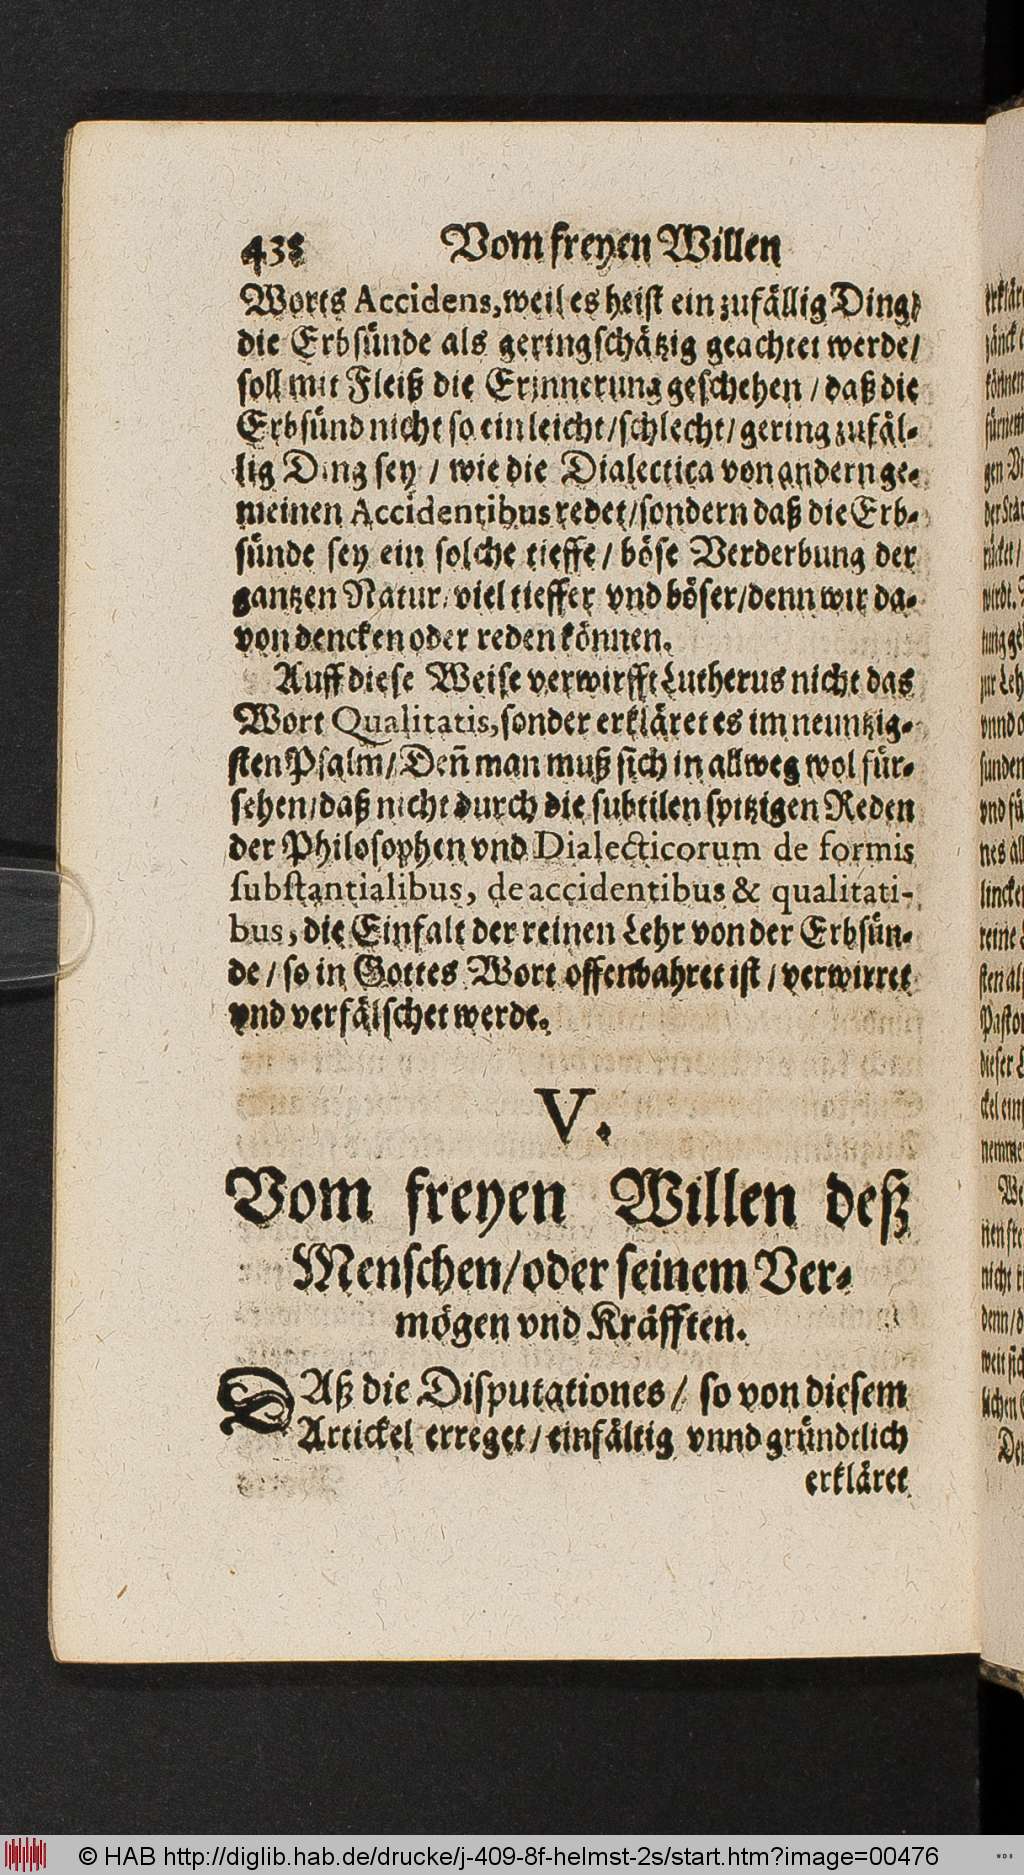 438 Vom freyen Willen
Worts Accidens, weil es heist ein zufällig Ding/
die Erbsünde als geringschätzig geachtet werde/
soll mit Fleiß die Erinnerung geschehen / daß die
Erbsünd nicht so ein leicht/schlecht/ gering zufäl-
lig Ding sey / wie die Dialectica von andern ge-
meinen Accidentibus redet/sondern daß die Erb-
sünde sey ein solche tieffe / böse Verderbung der
gantzen Natur/ viel tieffer vnd böser/denn wir da-
von dencken oder reden können.
Auff diese Weise verwirfft Lutherus nicht das
Wort Qualitatis, sonder erkläret es im neuntzig-
sten Psalm/ Deñ man muß sich in allweg wol für-
sehen/daß nicht durch die subtilen spitzigen Reden
der Philosophen vnd Dialecticorum de formis
substantialibus, de accidentibus & qualitati-
bus, die Einfalt der reinen Lehr von der Erbsün-
de / so in Gottes Wort offenbahret ist / verwirret
vnd verfälschet werde.
V.
Vom freyen Willen deß
Menschen/oder seinem Ver-
mögen vnd Kräfften.
DAß die Disputationes / so von diesem
Artickel erreget / einfältig vnnd gründtlich
erkläret
© HAB http://diglib.hab.de/drucke/j-409-8f-helmst-2s/start.htm?image=00476